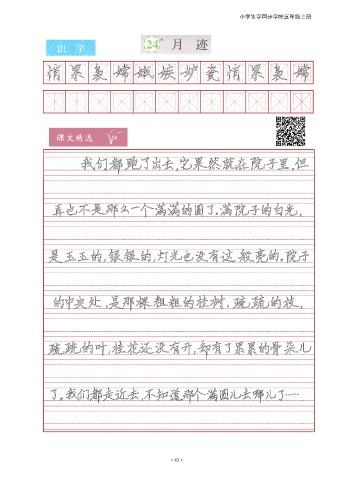 小学生字同步字帖五年级上册
识 字
24* 月 迹
悄 累 袅 嫦 娥 嫉 妒 瓷 悄 累 袅 嫦
课文精选
我们都跑了出去,它果然就在院子里,但
真也不是那么一个满满的圆了。满院子的白光,
是玉玉的,银银的,灯光也没有这 般亮的。院子
的中央处,是那棵粗粗的桂树,疏疏的枝,
疏疏的叶,桂花还没有开,却有了累累的骨朵儿
了。我们都走近去,不知道那个满圆儿去哪儿了……
• 43 •